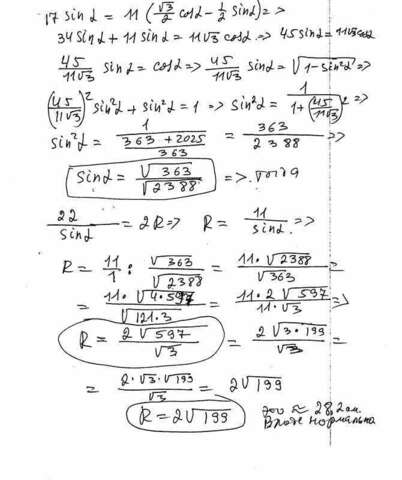 17 sinα = 11 (√3/2 cosα - 1/2 sinα) =>
34 sinα + 11 sinα = 11√3 cosα => 45 sinα = 11√3 cosα
45/11√3 sinα = cosα => 45/11√3 sinα = √1-sin²α =>
(45/11√3)² sin²α + sin²α = 1 => sin²α = 1/1+(45/11√3)² =>
sin²α = 1/363+2025/363 = 363/2388 =>
sinα = √363/√2388 => тогда
22/sinα = 2R => R = 11/sinα =>
R = 11/1 : √363/√2388 = 11·√2388/√363 =
= 11·√4·597/√121·3 = 11·2√597/11·√3 =>
R = 2√597/√3 = 2√3·199/√3 =
= 2·√3·√199/√3 = 2√199
R = 2√199
это ≈ 28,2 см.
Вроде нормально